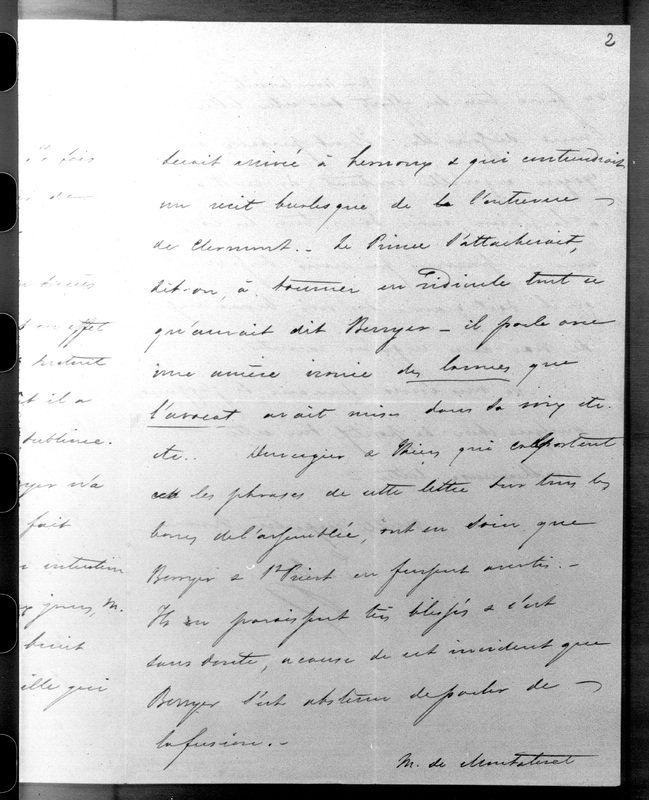 2
serait arrivé à Lernoux & qui contiendrait
un recit burlesque de l'entrevue
de Clermont. - Le Prince s'attacherait,
dit-on, à tourner en ridicule tout ce
qu'aurait dit Berryer - il parle avec
une amère ironie des larmes que
l'avocat avait mises dans sa voix etc.
etc.. Duvergier & Thiers qui colportent
les phrases de cette lettre sur tous les
bancs de l'assemblée, ont eu soin que
Berryer & St Priest en fussent avertis. -
Ils en paraissent très blessés & c'est
sans doute, a cause de cet incident que
Berryer s'est abstenu de parler de
la fusion. -
M. de
fois
de
accès
en effet
et il a
sublime.
n'a
fait
intention
jours, M.
qui